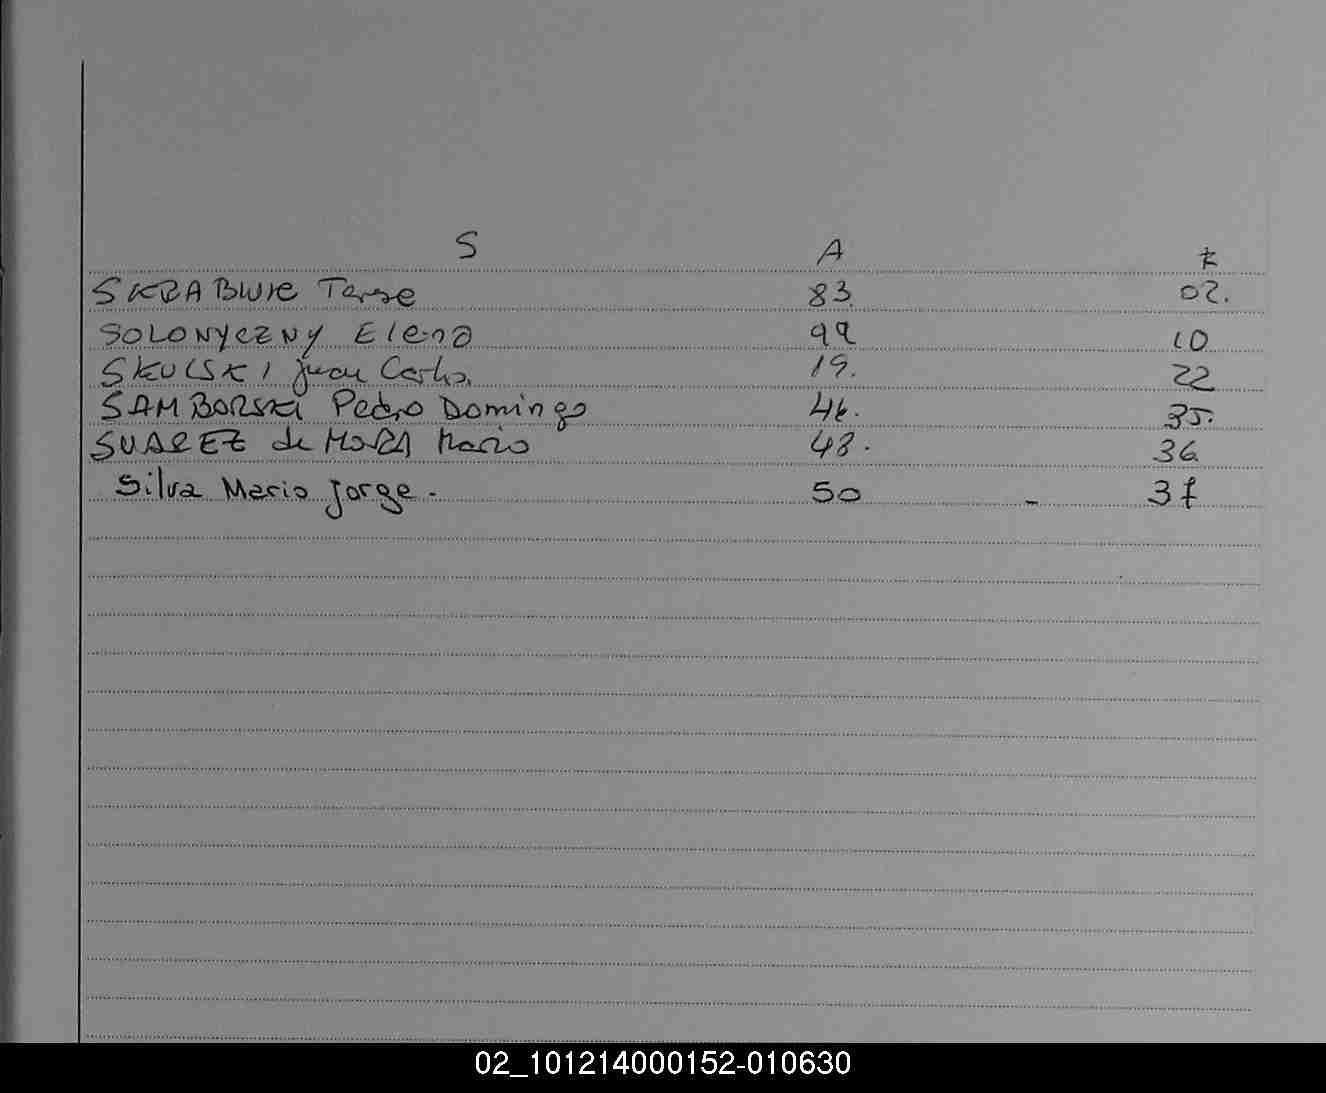 S A F
SKRABIUK Terse 83 02.
SOLONYCZNY Elena 99 10
SKULSKI Juan Carlos 19. 22
SAMBORSKI Pedro Domingo 46. 35.
SUAREZ de MORA Mario 48. 36
Silva Mario Jorge. 50 - 37
02_101214000152-010630